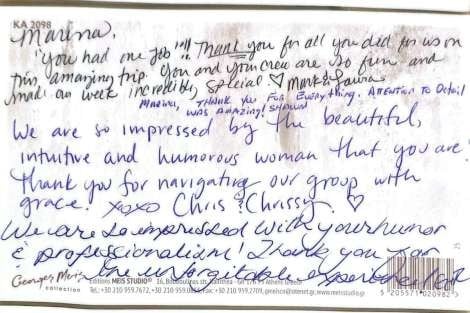 KA 2098
Marina,
"You had one job"!!! Thank you for all you did for us on
this amazing trip. You and your crew are so fun and
made our week incredibly special ♡ Mark & Laura
Marina, Thank you for everything. Attention to Detail
was amazing! Shawn
We are so impressed by the beautiful,
intuitive and humorous woman that you are.
Thank you for navigating our group with
grace. xoxo Chris & Chrissy. ♡
We are so impressed with your humor
& professionalism! Thank you for
the unforgitable experience!
Georges Meis
collection
Editions MEIS STUDIO®
Tel.: +30 210 959.7672, +30 210 959. Fax: +30 210 959.2709, www.meisstudio.gr
5 205571 020982